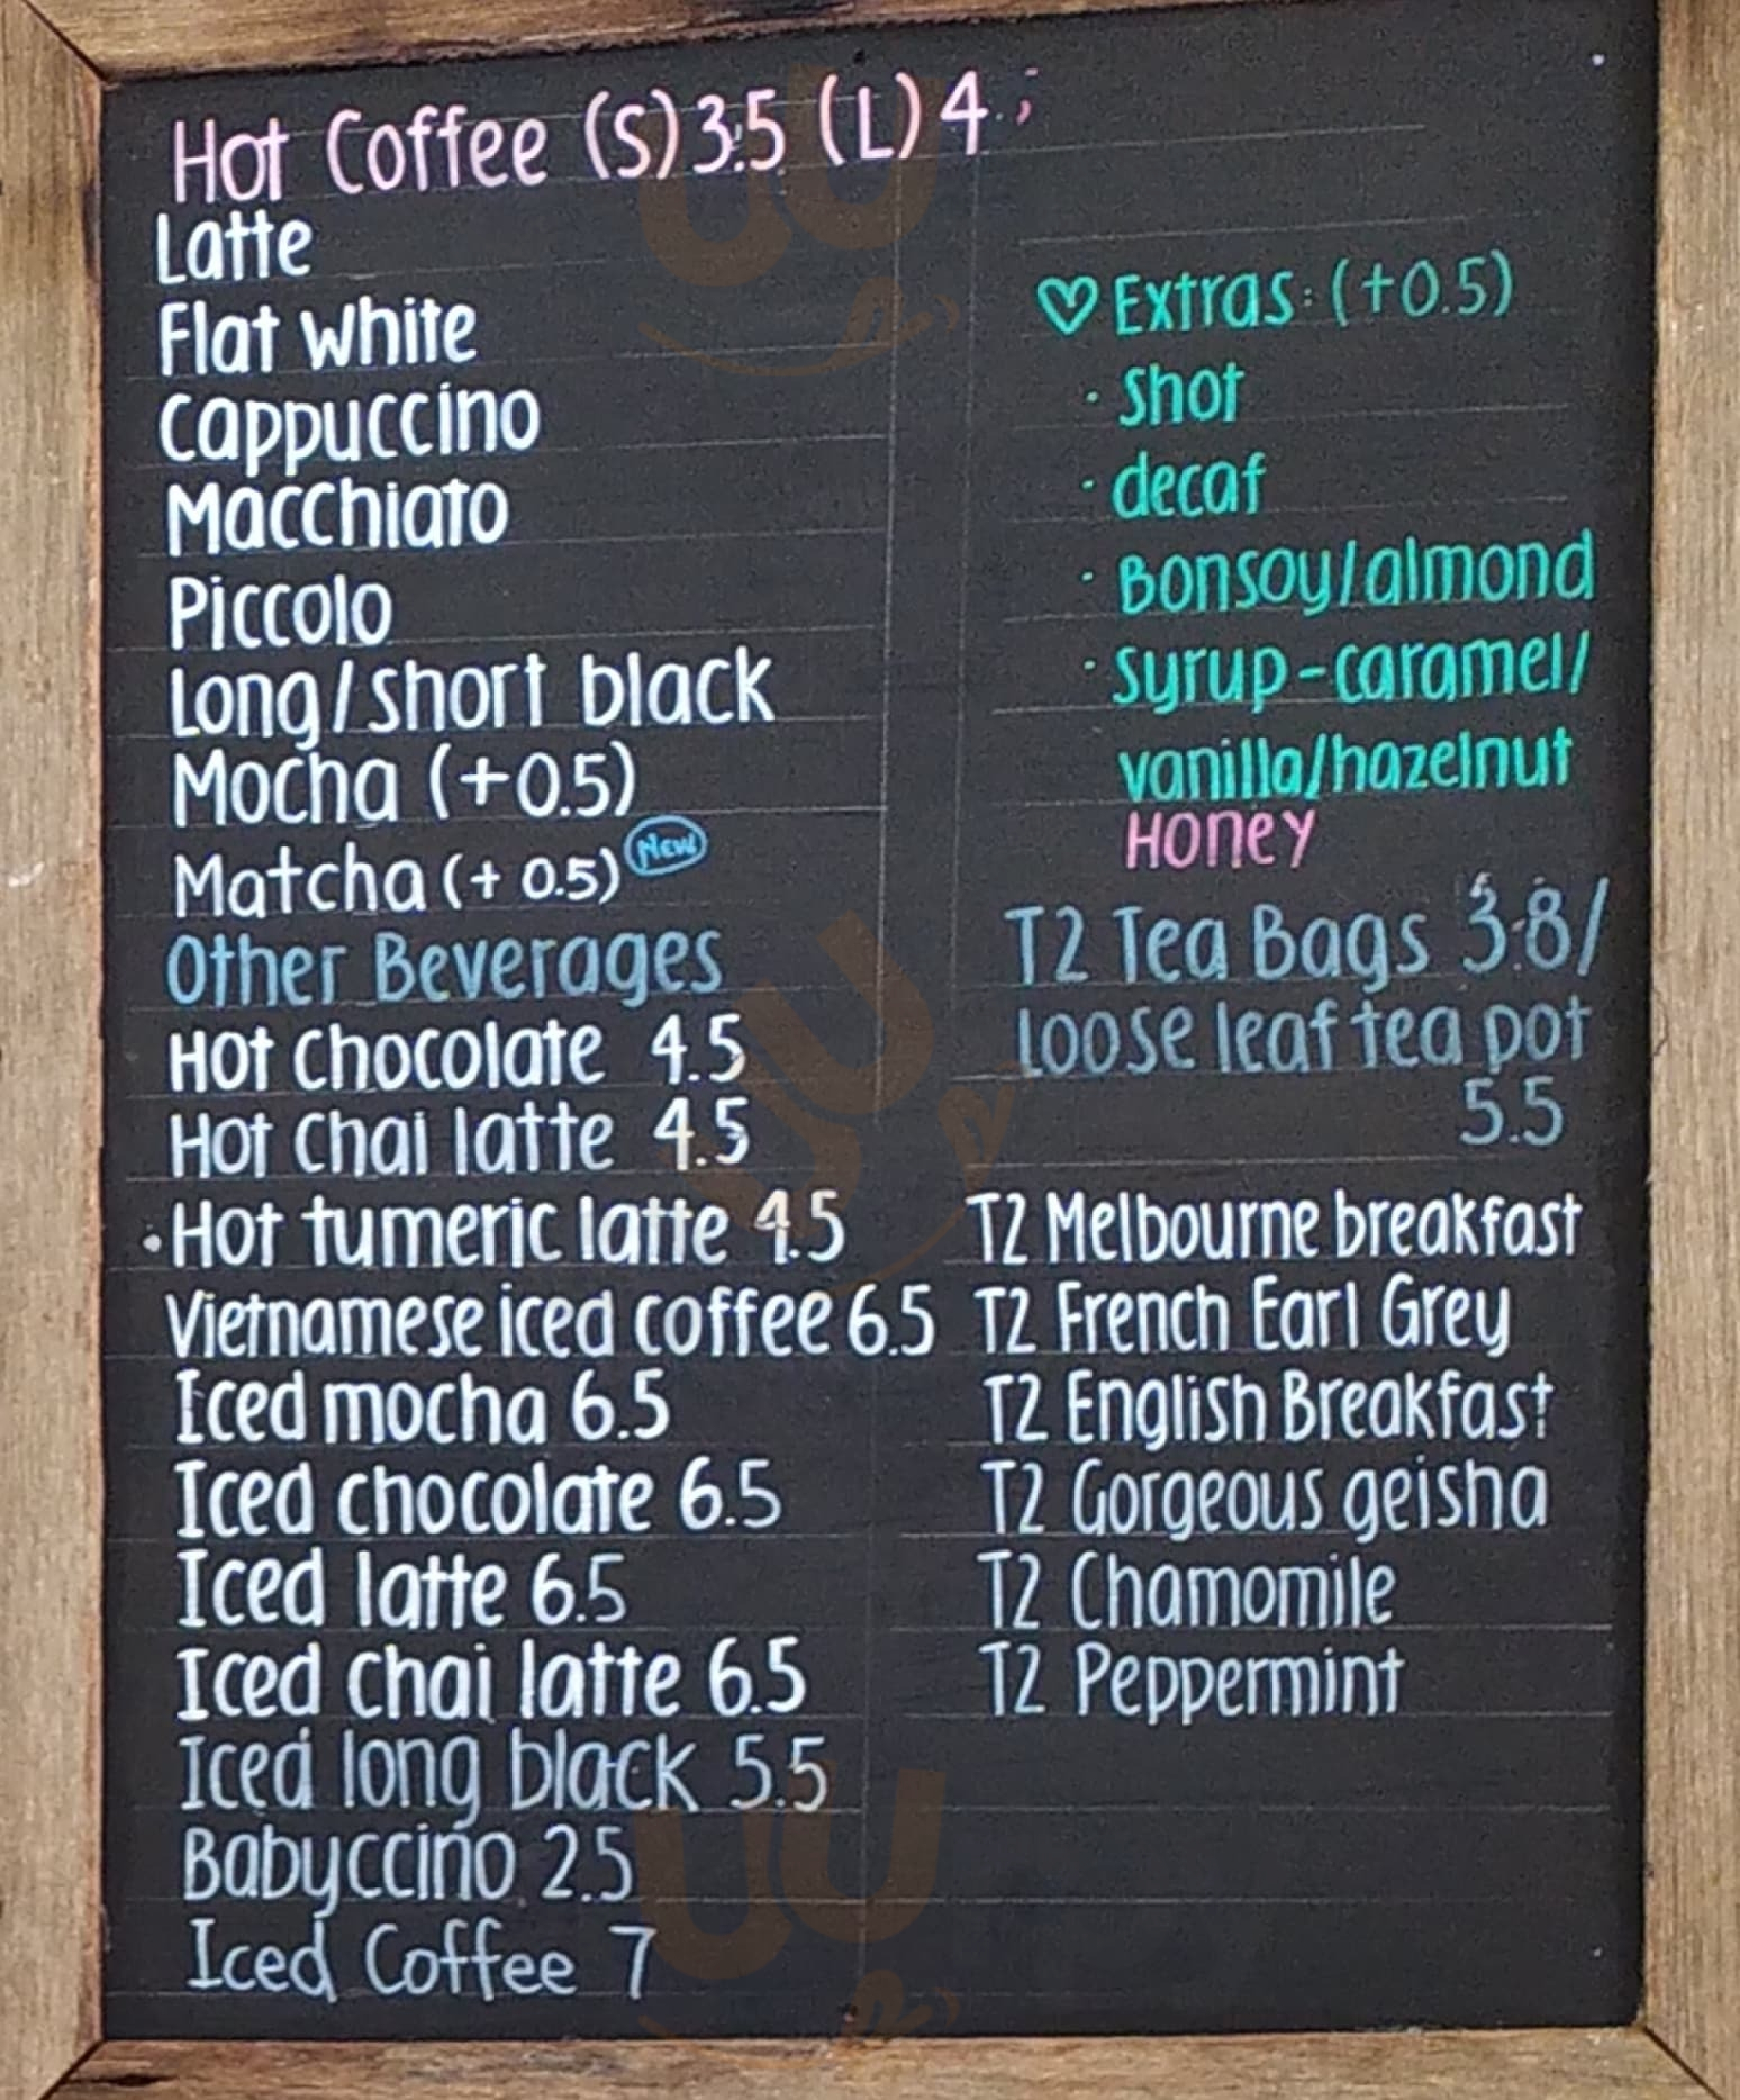 Hot Coffee (S) 3.5 (L) 4
Latte
Flat white
Cappuccino
Macchiato
Piccolo
Long/short black
Mocha (+0.5)
Matcha (+ 0.5) New
Other Beverages
Hot chocolate 4.5
Hot chai latte 4.5
· Hot tumeric latte 4.5
Vietnamese iced coffee 6.5
Iced mocha 6.5
Iced chocolate 6.5
Iced latte 6.5
Iced chai latte 6.5
Iced long black 5.5
Babyccino 2.5
Iced Coffee 7
♡ Extras: (+0.5)
· Shot
· decaf
· Bonsoy/almond
· Syrup-caramel/
vanilla/hazelnut
Honey
T2 Tea Bags 3.8/
loose leaf tea pot
5.5
T2 Melbourne breakfast
T2 French Earl Grey
T2 English Breakfast
T2 Gorgeous geisha
T2 Chamomile
T2 Peppermint